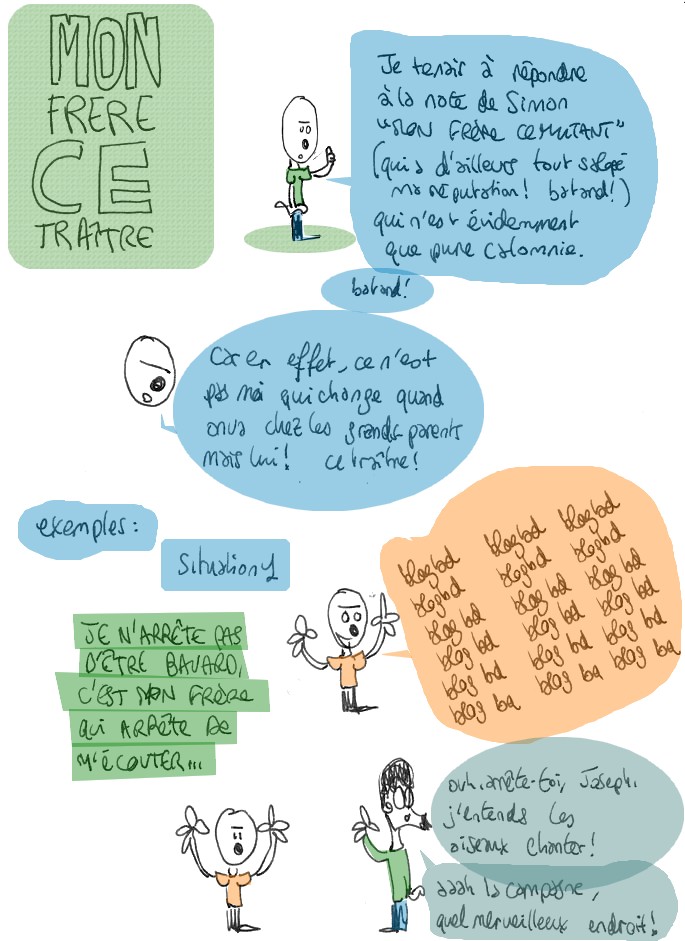 MON
FRERE
CE
TRAÎTRE
Je tenais à répondre
à la note de Simon
"MON FRÈRE CE MUTANT"
(qui a d'ailleurs tout salopé
ma réputation! batard!)
qui n'est évidemment
que pure calomnie.
batard!
Car en effet, ce n'est
pas moi qui change quand
on va chez les grands-parents
mais lui! ce traître!
exemples:
Situation 1
blog bd blog bd blog bd
blog bd blog bd blog bd
blog bd blog bd blog bd
blog bd blog bd blog bd
blog bd blog bd blog bd
blog bd blog bd blog bd
JE N'ARRÊTE PAS
D'ÊTRE BAVARD,
C'EST MON FRÈRE
QUI ARRÊTE DE
M'ÉCOUTER...
ouh. arrête-toi, Joseph.
j'entends les
oiseaux chanter!
aaah la campagne,
quel merveilleux endroit!